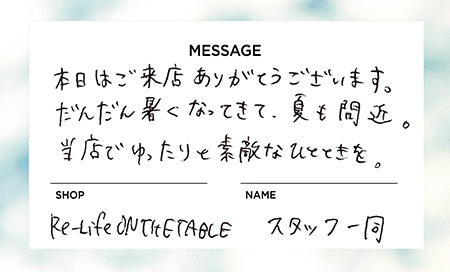 MESSAGE
本日はご来店ありがとうございます。
だんだん暑くなってきて、夏も間近。
当店でゆったりと素敵なひとときを。
SHOP
NAME
Re-Life ON THE TABLE
スタッフ一同